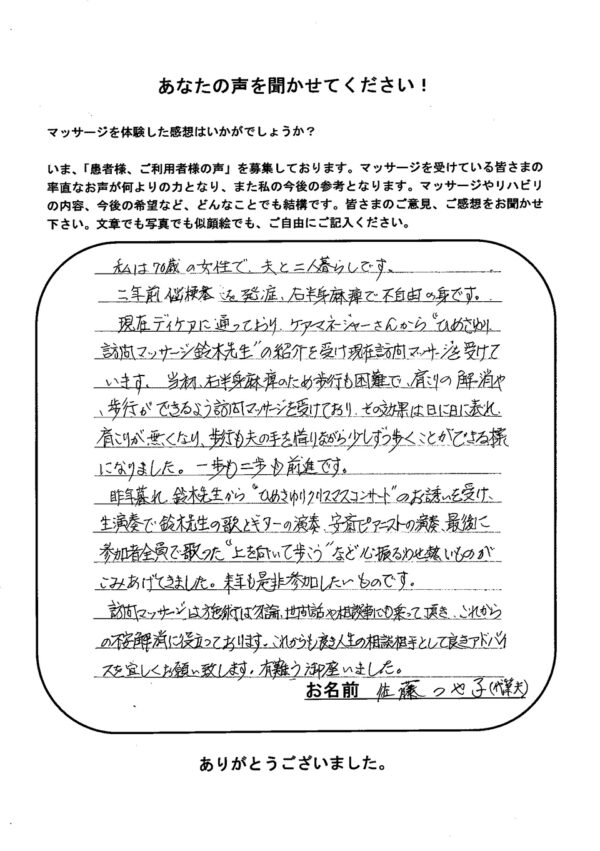 あなたの声を聞かせてください！
マッサージを体験した感想はいかがでしょうか？
いま、「患者様、ご利用者様の声」を募集しております。マッサージを受けている皆さまの
率直なお声が何よりの力となり、また私の今後の参考となります。マッサージやリハビリ
の内容、今後の希望など、どんなことでも結構です。皆さまのご意見、ご感想をお聞かせ
下さい。文章でも写真でも似顔絵でも、ご自由にご記入ください。
私は70歳の女性で、夫と二人暮らしです。
二年前脳梗塞を発症、右半身麻痺で不自由の身です。
現在ディケアに通っており、ケアマネージャーさんから"ひめさゆり
訪問マッサージ鈴木先生"の紹介を受け現在訪問マッサージを受けて
います。当初、右半身麻痺のため歩行も困難で、肩こりの解消や
、歩行ができるよう訪問マッサージを受けており、その効果は日に日に表れ、
肩こりが無くなり、歩行も夫の手を借りながら少しずつ歩くことができる様
になりました。一歩も二歩も前進です。
昨年暮れ、鈴木先生から"ひめさゆりクリスマスコンサート"のお誘いを受け、
生演奏で鈴木先生の歌とギターの演奏、安斎ピアニストの演奏、最後に
参加者全員で歌った"上を向いて歩こう"など心振るわせ熱いものが
こみあげてきました。来年も是非参加したいものです。
訪問マッサージは施術は勿論、世間話や相談事にも乗って頂き、これから
の不安解消に役立っております。これからも良き人生の相談相手として良きアドバイ
スを宜しくお願い致します。有難う御座いました。
お名前 佐藤つや子(代筆夫)
ありがとうございました。